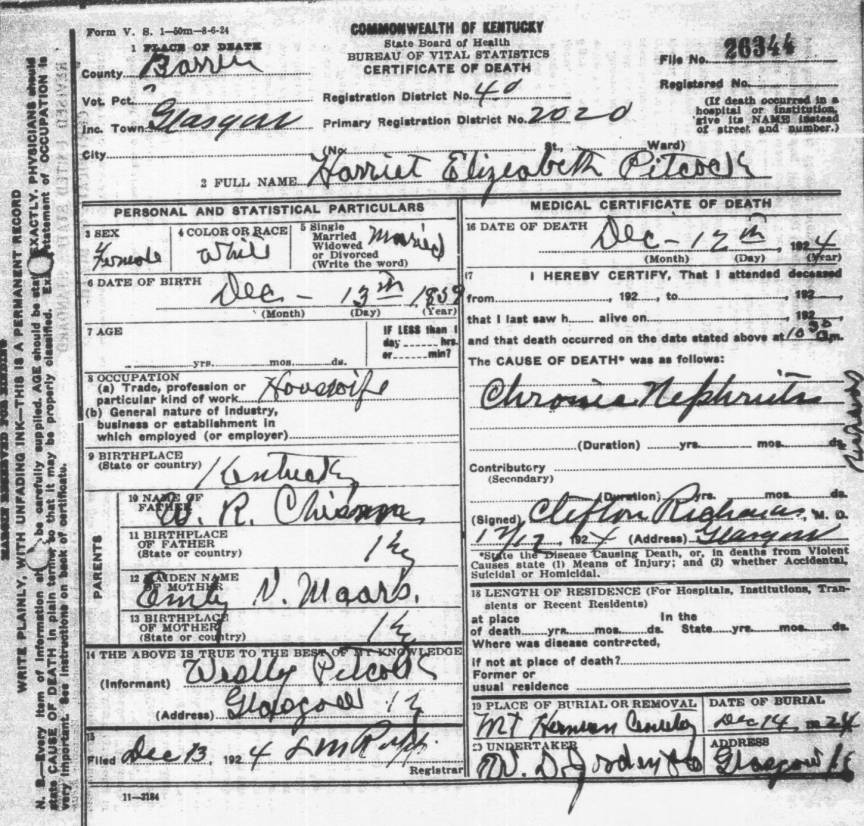 Form V. S. 1—50m—8-6-24
COMMONWEALTH OF KENTUCKY
State Board of Health
BUREAU OF VITAL STATISTICS
CERTIFICATE OF DEATH
File No. 26344
Registered No.
(If death occurred in a hospital or institution, give its NAME instead of street and number.)
1 PLACE OF DEATH
County Barren
Vot. Pct.
Inc. Town Glasgow
City
Registration District No. 40
Primary Registration District No. 2020
(No. St., Ward)
2 FULL NAME Harriet Elizabeth Pitcock
PERSONAL AND STATISTICAL PARTICULARS
3 SEX Female
4 COLOR OR RACE White
5 Single Married Widowed or Divorced (Write the word) Married
6 DATE OF BIRTH Dec - 13th 1859
(Month) (Day) (Year)
7 AGE
yrs. mos. ds.
IF LESS than 1 day hrs. or min?
8 OCCUPATION
(a) Trade, profession or particular kind of work Housewife
(b) General nature of industry, business or establishment in which employed (or employer)
9 BIRTHPLACE
(State or country) Kentucky
PARENTS
10 NAME OF FATHER W. R.
11 BIRTHPLACE OF FATHER
(State or country) Ky
12 MAIDEN NAME OF MOTHER Emily
13 BIRTHPLACE OF MOTHER
(State or country) Ky
14 THE ABOVE IS TRUE TO THE BEST OF MY KNOWLEDGE
(Informant) Pitcock
(Address) Glasgow Ky
15
Filed Dec 13, 1924
Registrar
11—3184
MEDICAL CERTIFICATE OF DEATH
16 DATE OF DEATH Dec - 12th, 1924
(Month) (Day) (Year)
17 I HEREBY CERTIFY, That I attended deceased
from , 192 , to , 192
that I last saw h alive on , 192
and that death occurred on the date stated above at 10 m.
The CAUSE OF DEATH* was as follows:
Chronic Nephritis
(Duration) yrs. mos. ds.
Contributory
(Secondary)
(Duration) yrs. mos. ds.
(Signed) Clifton , M. D.
12/12, 1924 (Address) Glasgow
*State the Disease Causing Death, or, in deaths from Violent Causes state (1) Means of Injury; and (2) whether Accidental, Suicidal or Homicidal.
18 LENGTH OF RESIDENCE (For Hospitals, Institutions, Transients or Recent Residents)
at place of death yrs. mos. ds. In the State yrs. mos. ds.
Where was disease contracted,
if not at place of death?
Former or usual residence
19 PLACE OF BURIAL OR REMOVAL
DATE OF BURIAL
Mt Dec 14 1924
20 UNDERTAKER
ADDRESS
Glasgow Ky
WRITE PLAINLY, WITH UNFADING INK—THIS IS A PERMANENT RECORD
N. B.—Every item of information should be carefully supplied. AGE should be stated EXACTLY. PHYSICIANS should
state CAUSE OF DEATH in plain terms, so that it may be properly classified. Exact statement of OCCUPATION is
very important. See instructions on back of certificate.